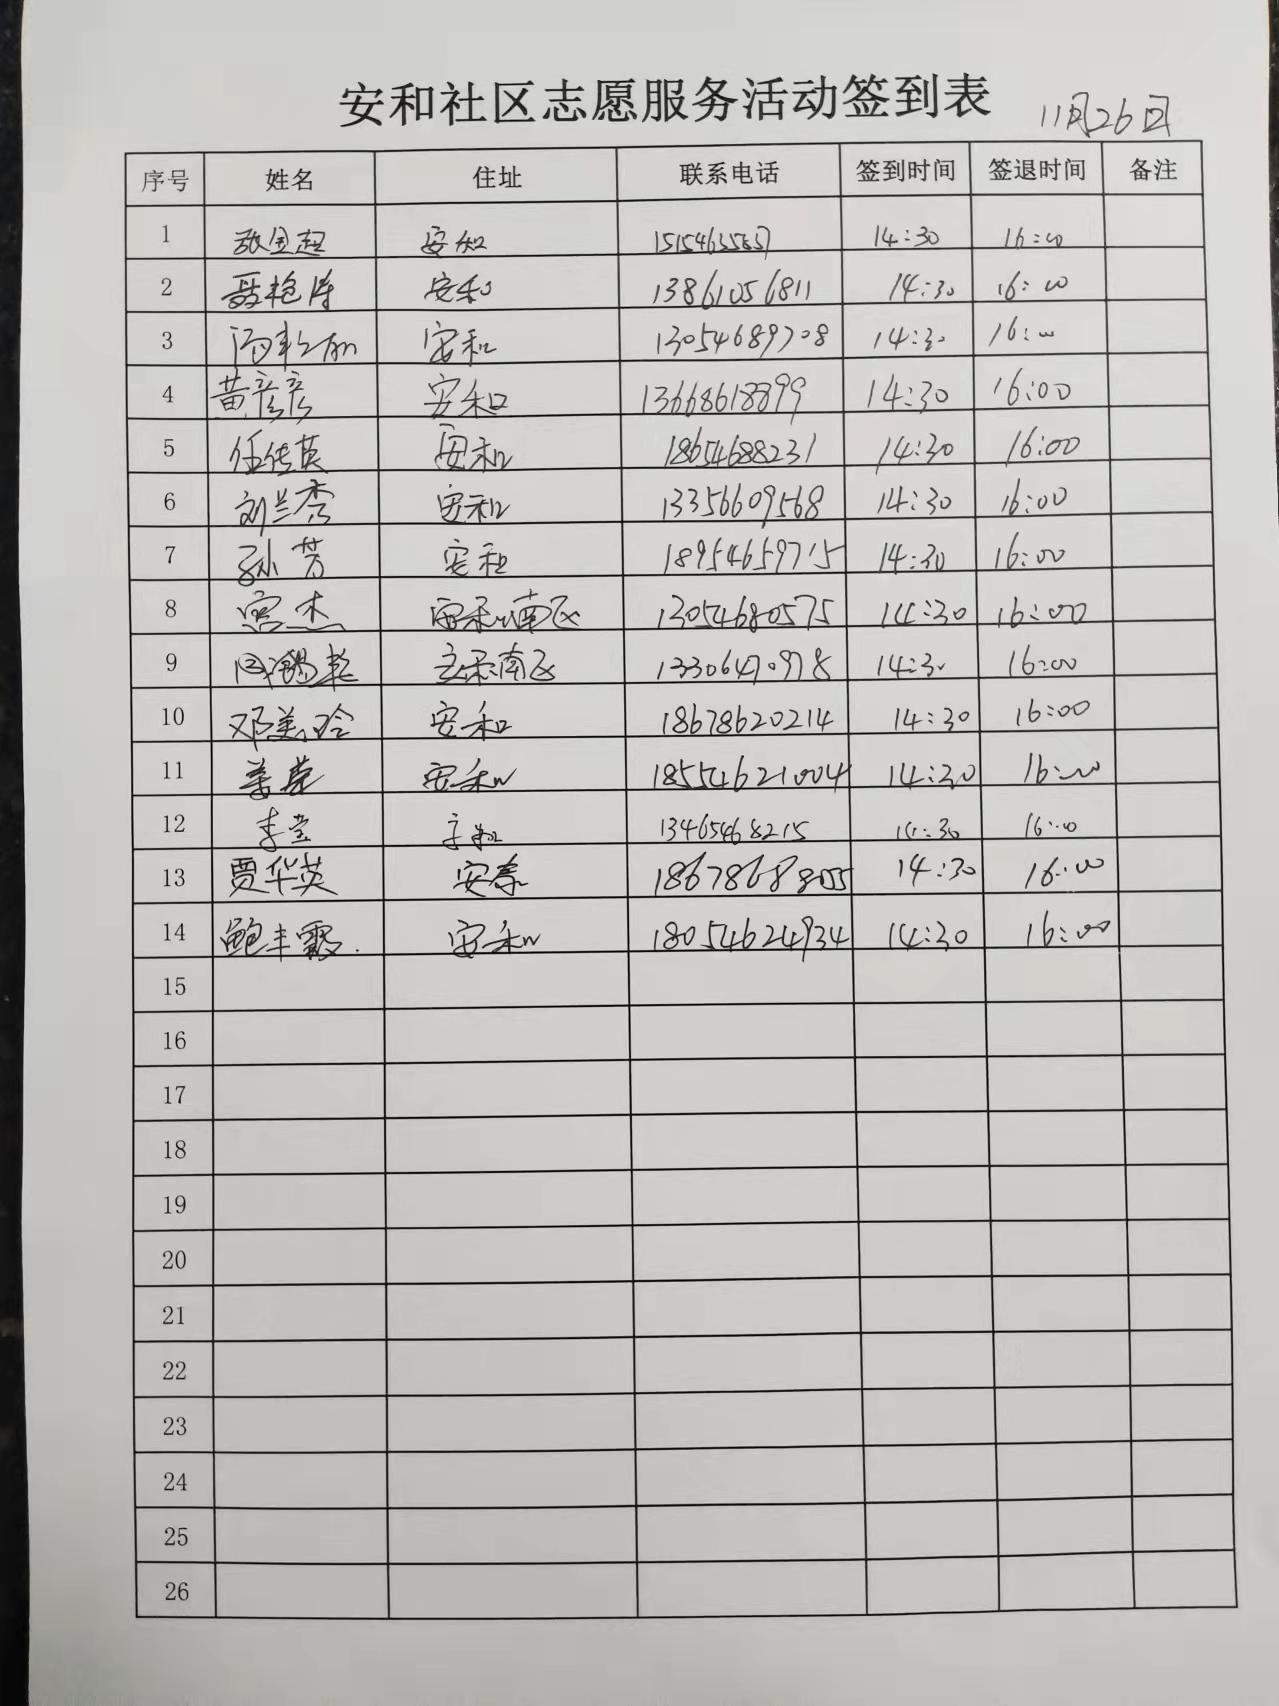 安和社区志愿服务活动签到表 11月26日
序号 姓名 住址 联系电话 签到时间 签退时间 备注
1 安和 14:30 16:00
2 安和 13861056811 14:30 16:00
3 安和 13054689708 14:30 16:00
4 黄彦彦 安和 13668618899 14:30 16:00
5 任传英 安和 18654688231 14:30 16:00
6 刘兰秀 安和 13356609568 14:30 16:00
7 孙芳 安和 18954659715 14:30 16:00
8 宫杰 安和南区 13054680575 14:30 16:00
9 安和南区 13306470978 14:30 16:00
10 邓美玲 安和 18678620214 14:30 16:00
11 安和 18554621004 14:30 16:00
12 李莹 安和 13465468215 14:30 16:00
13 贾华英 安泰 14:30 16:00
14 鲍丰霞 安和 18054624934 14:30 16:00
15
16
17
18
19
20
21
22
23
24
25
26